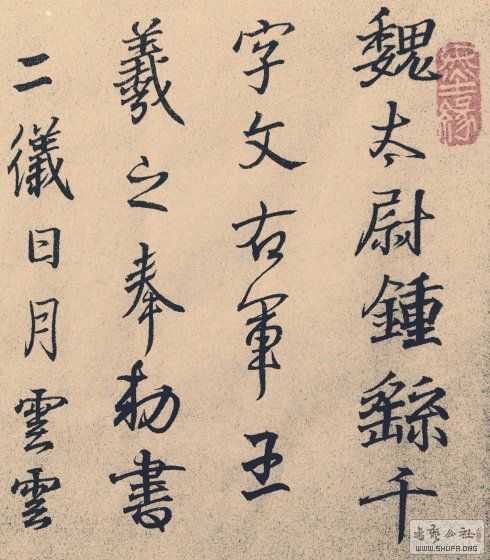 魏太尉鍾繇千
字文右軍王
羲之奉勅書
二儀日月雲雲
WWW.SHUFA.ORG